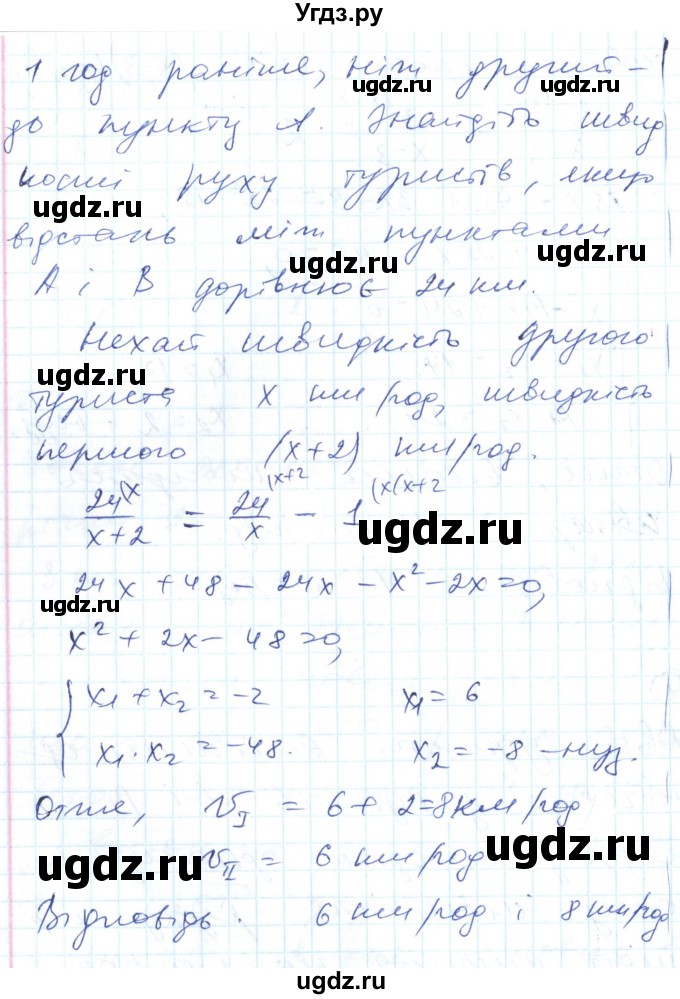 Угдз.ру
1 год раніше, ніж другий -
до пункту А. Знайдіть швид
кості руху туристів, якщо
відстань між пунктами
А і В дорівнює 24 км.
Нехай швидкість другого
туриста х км/год, швидкість
першого (х+2) км/год.
24(x / x+2 = 24(x+2 / x - 1(x(x+2
24x + 48 - 24x - x² - 2x = 0,
x² + 2x - 48 = 0,
{ x₁ + x₂ = -2   x₁ = 6
x₁ · x₂ = -48.   x₂ = -8 -
Отже, v_I = 6 + 2 = 8 км/год
v_II = 6 км/год
Відповідь. 6 км/год і 8 км/год
ugdz.ru
ugdz.ru
ugdz.ru
ugdz.ru
ugdz.ru
ugdz.ru
ugdz.ru
ugdz.ru
ugdz.ru
ugdz.ru
ugdz.ru
ugdz.ru
ugdz.ru
ugdz.ru